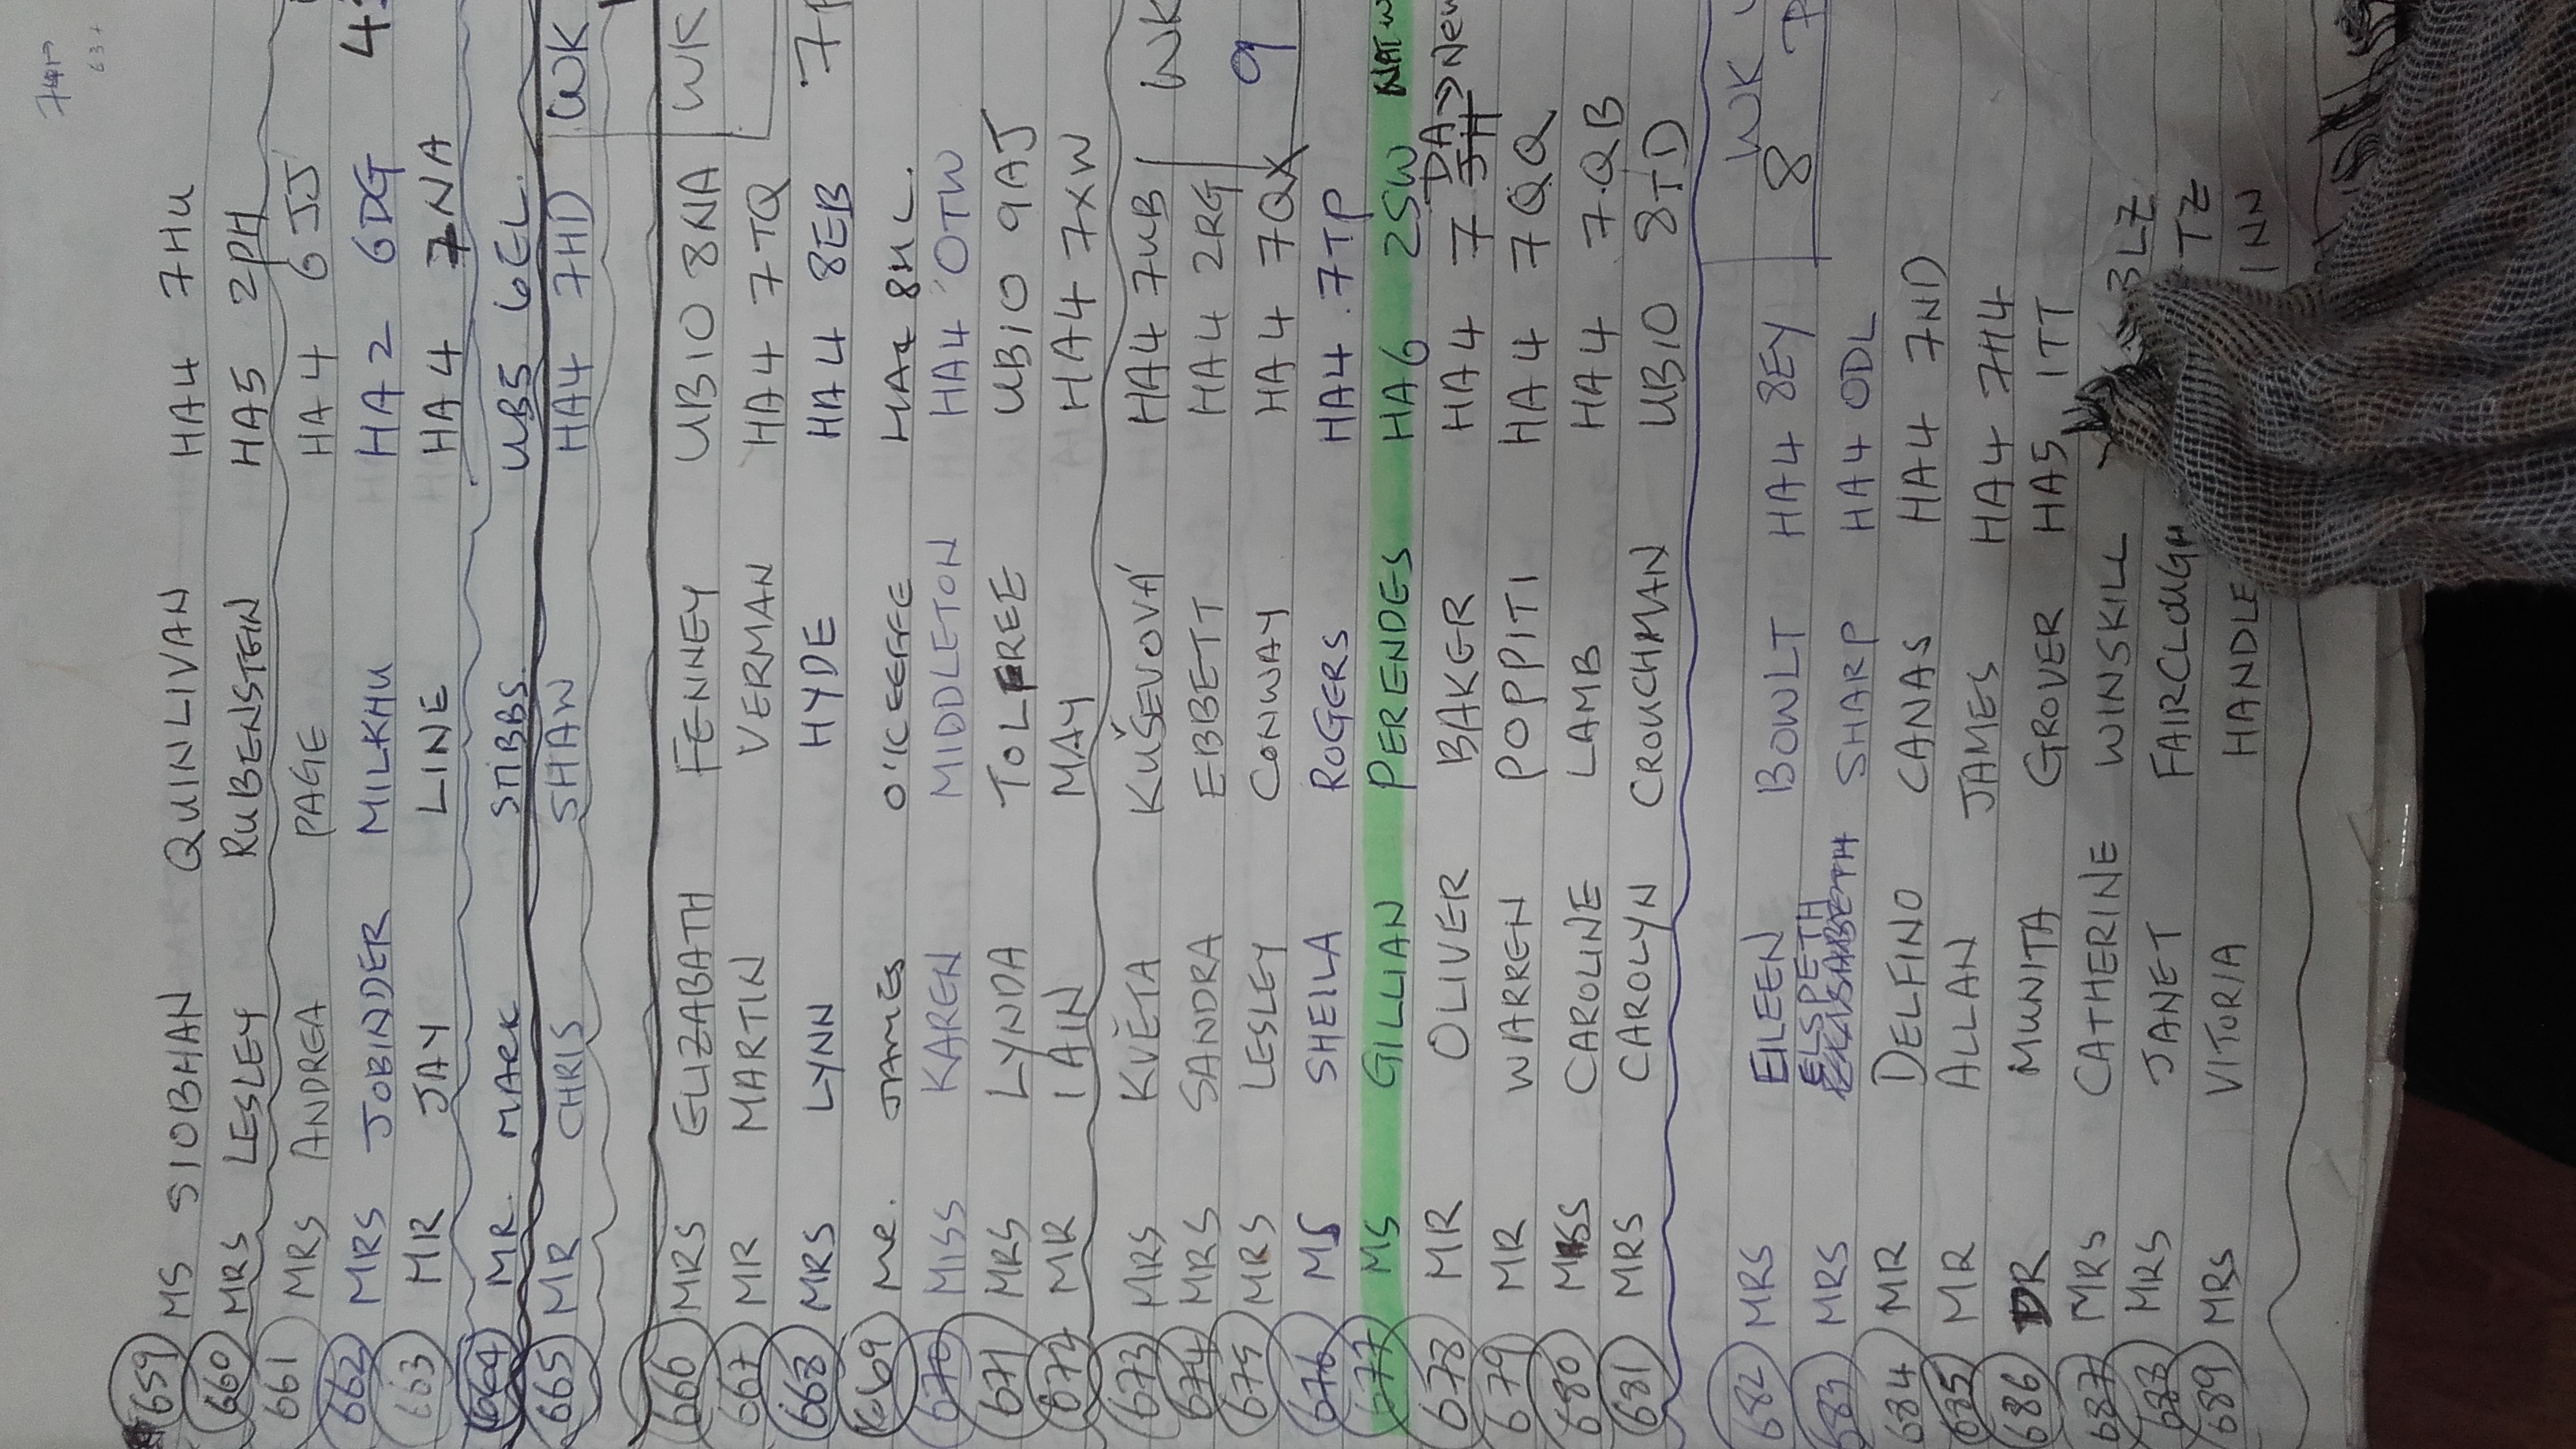 659 MS SIOBHAN QUINLIVAN HA4 7HU
660 MRS LESLEY RUBENSTEIN HA5 2PH
661 MRS ANDREA PAGE HA4 6JJ
662 MRS JOBINDER MILKHU HA2 6DG
663 MR JAY LINE HA4 7NA
664 MR. MARK STIBBS. UB5 6EL.
665 MR CHRIS SHAW HA4 7HD WK
666 MRS ELIZABATH FENNEY UB10 8NA WK
667 MR MARTIN VERMAN HA4 7TQ
668 MRS LYNN HYDE HA4 8EB
669 MR. JAMES O'KEEFFE HA4 8HL.
670 MISS KAREN MIDDLETON HA4 0TW
671 MRS LYNDA TOLFREE UB10 9AJ
672 MR IAIN MAY HA4 7XW
673 MRS KVĚTA KUŠEVOVÁ HA4 7UB WK
674 MRS SANDRA EBBETT HA4 2RG
675 MRS LESLEY CONWAY HA4 7QX 9
676 MS SHEILA ROGERS HA4 7TP
677 MS GILLIAN PERENDES HA6 2SW NATW
678 MR OLIVER BAKER HA4 7 DA → New
JH
679 MR WARREN POPPITI HA4 7QQ
680 MISS CAROLINE LAMB HA4 7QB
681 MRS CAROLYN CROUCHMAN UB10 8TD
682 MRS EILEEN BOWLT HA4 8EY WK
8
ELSPETH
683 MRS ELISABETH SHARP HA4 0DL
684 MR DELFINO CANAS HA4 7ND
685 MR ALLAN JAMES HA4 7H4
686 DR MUNITA GROVER HA5 1TT
687 MRS CATHERINE WINSKILL 3LZ
688 MRS JANET FAIRCLOUGH TZ
689 MRS VITORIA HANDLE 1NN